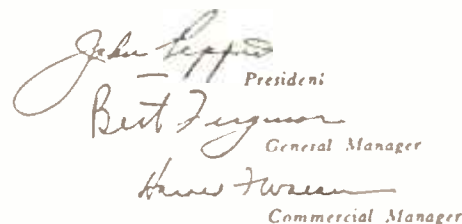 John Pepper
President
Bert Ferguson
General Manager
Commercial Manager